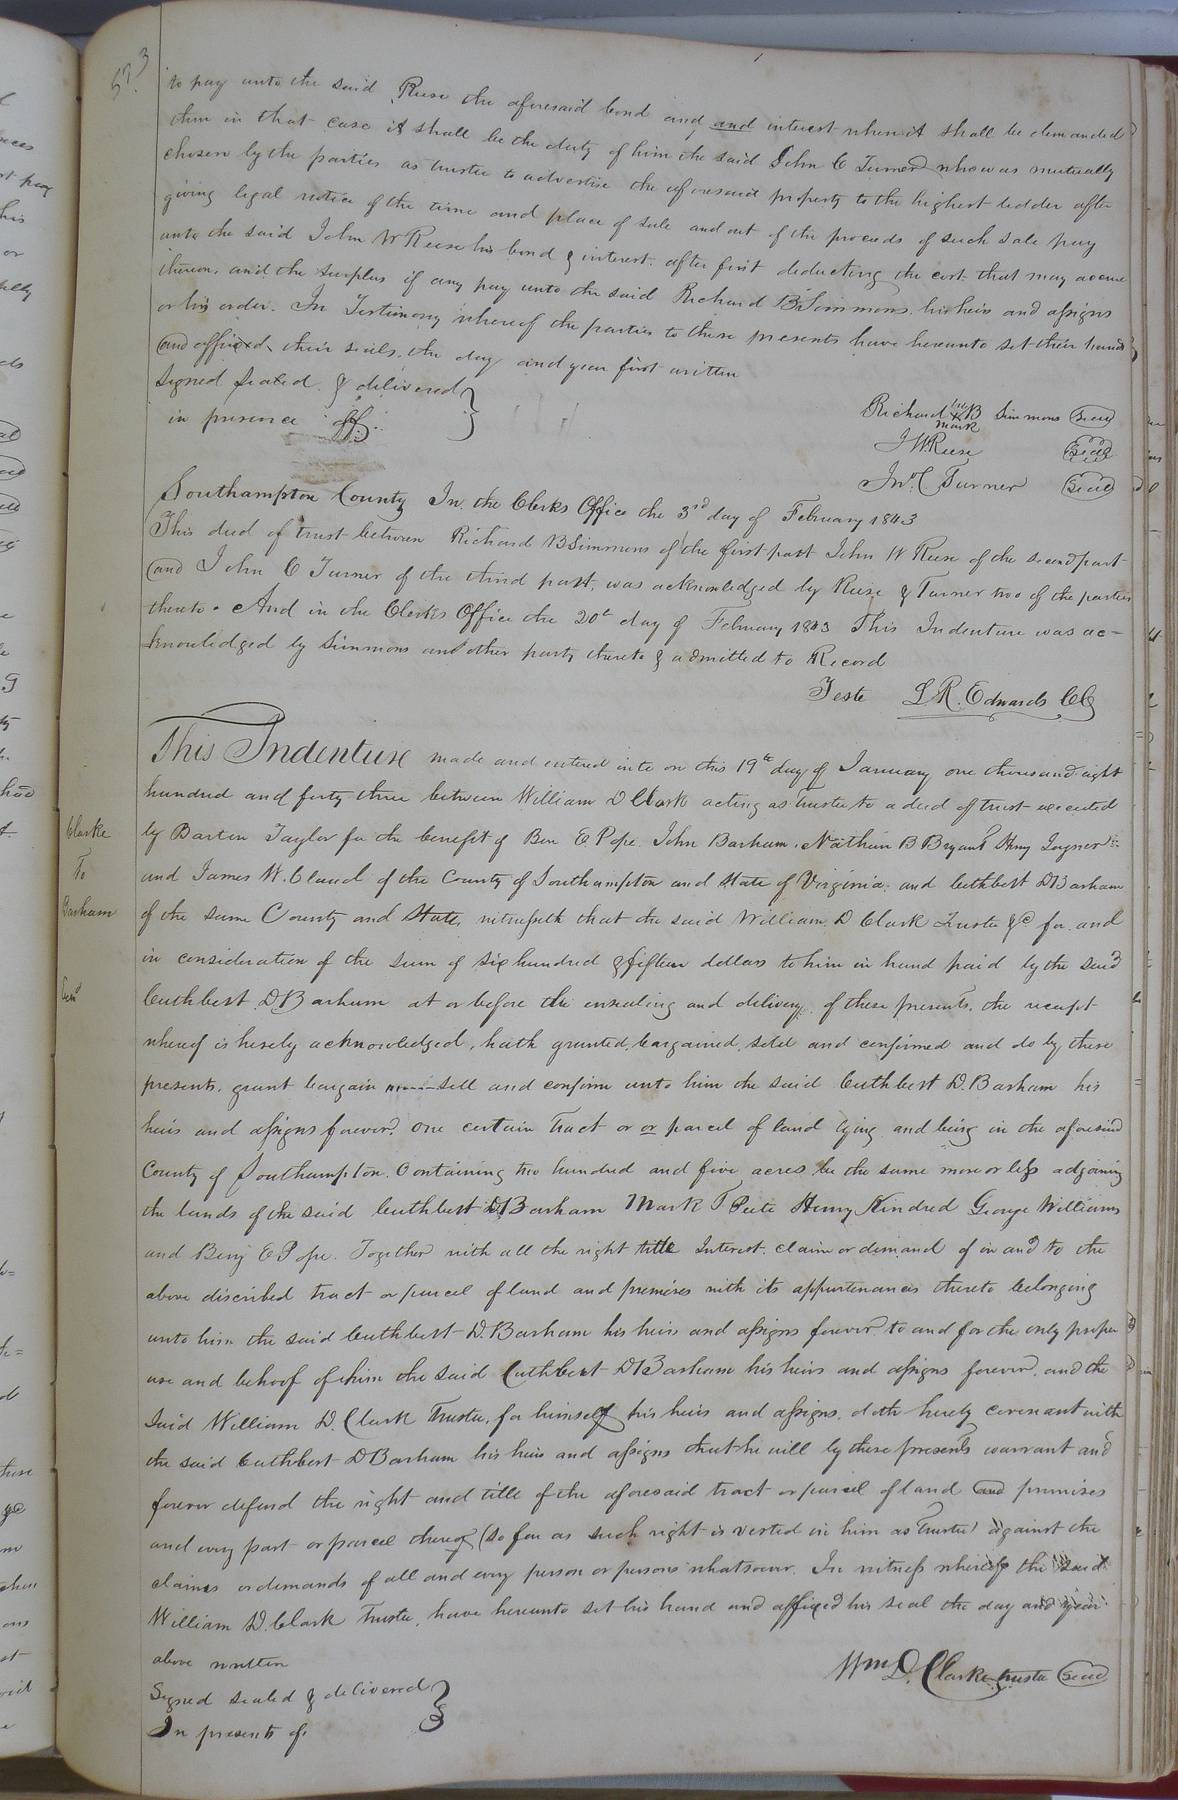 573
to pay unto the said Reese the aforesaid bond and and interest when it shall be demanded
then in that case it shall be the duty of him the said John C Turner who was mutually
chosen by the parties as trustee to advertise the aforesaid property to the highest bidder after
giving legal notice of the time and place of sale and out of the proceeds of such sale pay
unto the said John W Reese his bond & interest. after first deducting the cost that may accrue
thereon, and the surplus if any pay unto the said Richard B Simmons, his heirs and assigns
or his order. In Testimony whereof the parties to these presents have hereunto set their hands
and affixed their seals, the day and year first written
Signed sealed & delivered
in presence of
Richard his X mark B Simmons Seal
J W. Reese Seal
Jno. C Turner Seal
Southampton County In the Clerks Office the 3rd day of February 1843
This deed of trust between Richard B Simmons of the first part John W Reese of the second part
and John C Turner of the third part, was acknowledged by Reese & Turner two of the parties
thereto. And in the Clerks Office the 20th day of February 1843 This Indenture was ac-
knowledged by Simmons another party thereto & admitted to Record
Teste L R. Edwards CC
This Indenture made and entered into on this 19th day of January one thousand eight
hundred and forty three between William D Clark acting as trustee to a deed of trust executed
Clarke
To
Barham
by Barten Taylor for the benefit of Ben E Pope. John Barham. Nathan B Bryant Henry Joyner
and James W. Claud of the County of Southampton and State of Virginia, and Cuthbert D Barham
of the same County and State, witnesseth that the said William D Clark Trustee &c for and
in consideration of the sum of six hundred & fifteen dollars to him in hand paid by the said
Cuthbert D Barham at or before the ensealing and delivery of these presents, the receipt
whereof is hereby acknowledged, hath granted, bargained, sold and confirmed and do by these
presents, grant bargain sell and confirm unto him the said Cuthbert D. Barham his
heirs and assigns forever. one certain Tract or or parcel of land lying and being in the aforesaid
County of Southampton. Containing two hundred and five acres be the same more or less adjoining
the lands of the said Cuthbert D Barham Mark T Peete Henry Kindred George Williams
and Benj E Pope. Together with all the right title Interest. claim or demand of in and to the
above discribed tract or parcel of land and premises with its appurtenances thereto belonging
unto him the said Cuthbert D. Barham his heirs and assigns forever to and for the only proper
use and behoof of him the said Cuthbert D Barham his heirs and assigns forever, and the
said William D. Clark Trustee, for himself his heirs and assigns, doth hereby covenant with
the said Cuthbert D Barham his heirs and assigns that he will by these presents warrant and
forever defend the right and title of the aforesaid tract or parcel of land and premises
and every part or parcel thereof (so far as such right is vested in him as Trustee) against the
claims or demands of all and every person or persons whatsoever. In witness whereof the said
William D. Clark Trustee, have hereunto set his hand and affixed his seal the day and year
above written
Wm D. Clarke trustee Seal
Signed sealed & delivered
In presents of